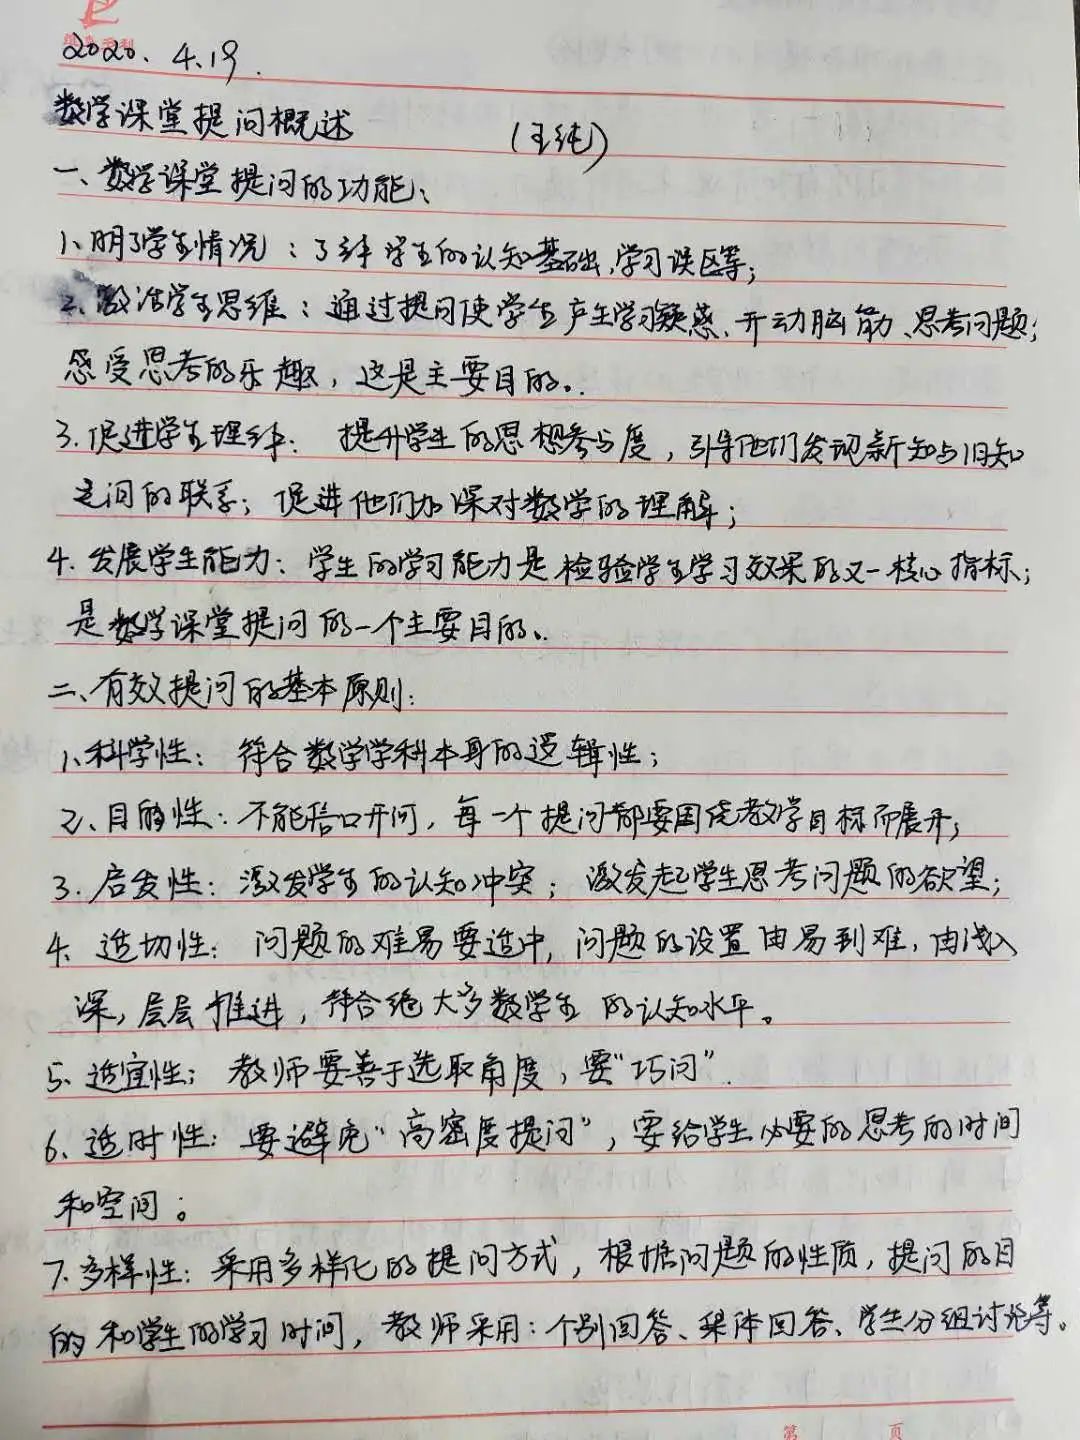 2020.4.19.
数学课堂提问概述 (王纯)
一、数学课堂提问的功能:
1、明了学生情况:了解学生的认知基础,学习误区等;
2、激活学生思维:通过提问使学生产生学习疑惑、开动脑筋、思考问题;
感受思考的乐趣,这是主要目的。
3.促进学生理解:提升学生的思想参与度,引导他们发现新知与旧知
之间的联系;促进他们加深对数学的理解;
4.发展学生能力:学生的学习能力是检验学生学习效果的又一核心指标;
是数学课堂提问的一个主要目的。
二、有效提问的基本原则:
1、科学性:符合数学学科本身的逻辑性;
2、目的性:不能信口开河,每一个提问都要围绕教学目标而展开;
3.启发性:激发学生的认知冲突;激发起学生思考问题的欲望;
4.适切性:问题的难易要适中,问题的设置由易到难,由浅入
深,层层推进,符合绝大多数学生的认知水平。
5、适宜性:教师要善于选取角度,要“巧问”.
6、适时性:要避免“高密度提问”,要给学生必要的思考的时间
和空间。
7.多样性:采用多样化的提问方式,根据问题的性质,提问的目
的和学生的学习时间,教师采用:个别回答、集体回答、学生分组讨论等。
第 页